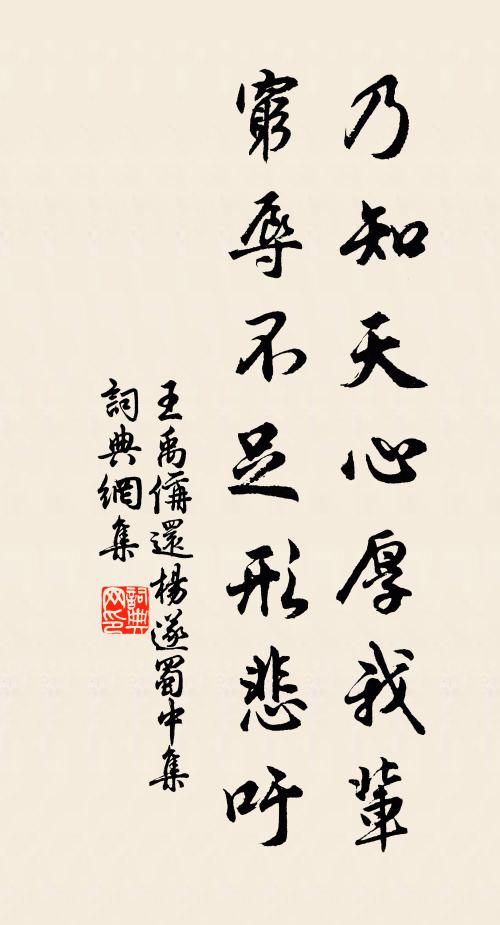 乃知天心厚我輩
窮辱不足形悲吁
王禹偁還楊遂蜀中集
詞典網集
詞典网印